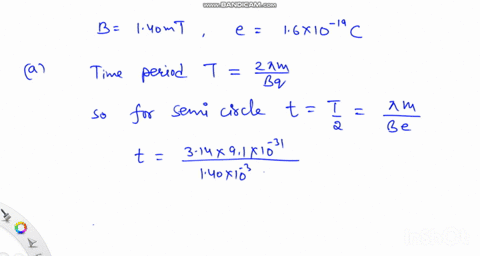 WWW.BANDICAM.COM
B = 1.40mT , e = 1.6×10⁻¹⁹ C
(a) Time period T = 2πm / Bq
so for semi circle t = T/2 = πm / Be
t = 3.14 × 9.1×10⁻³¹ / 1.40×10⁻³